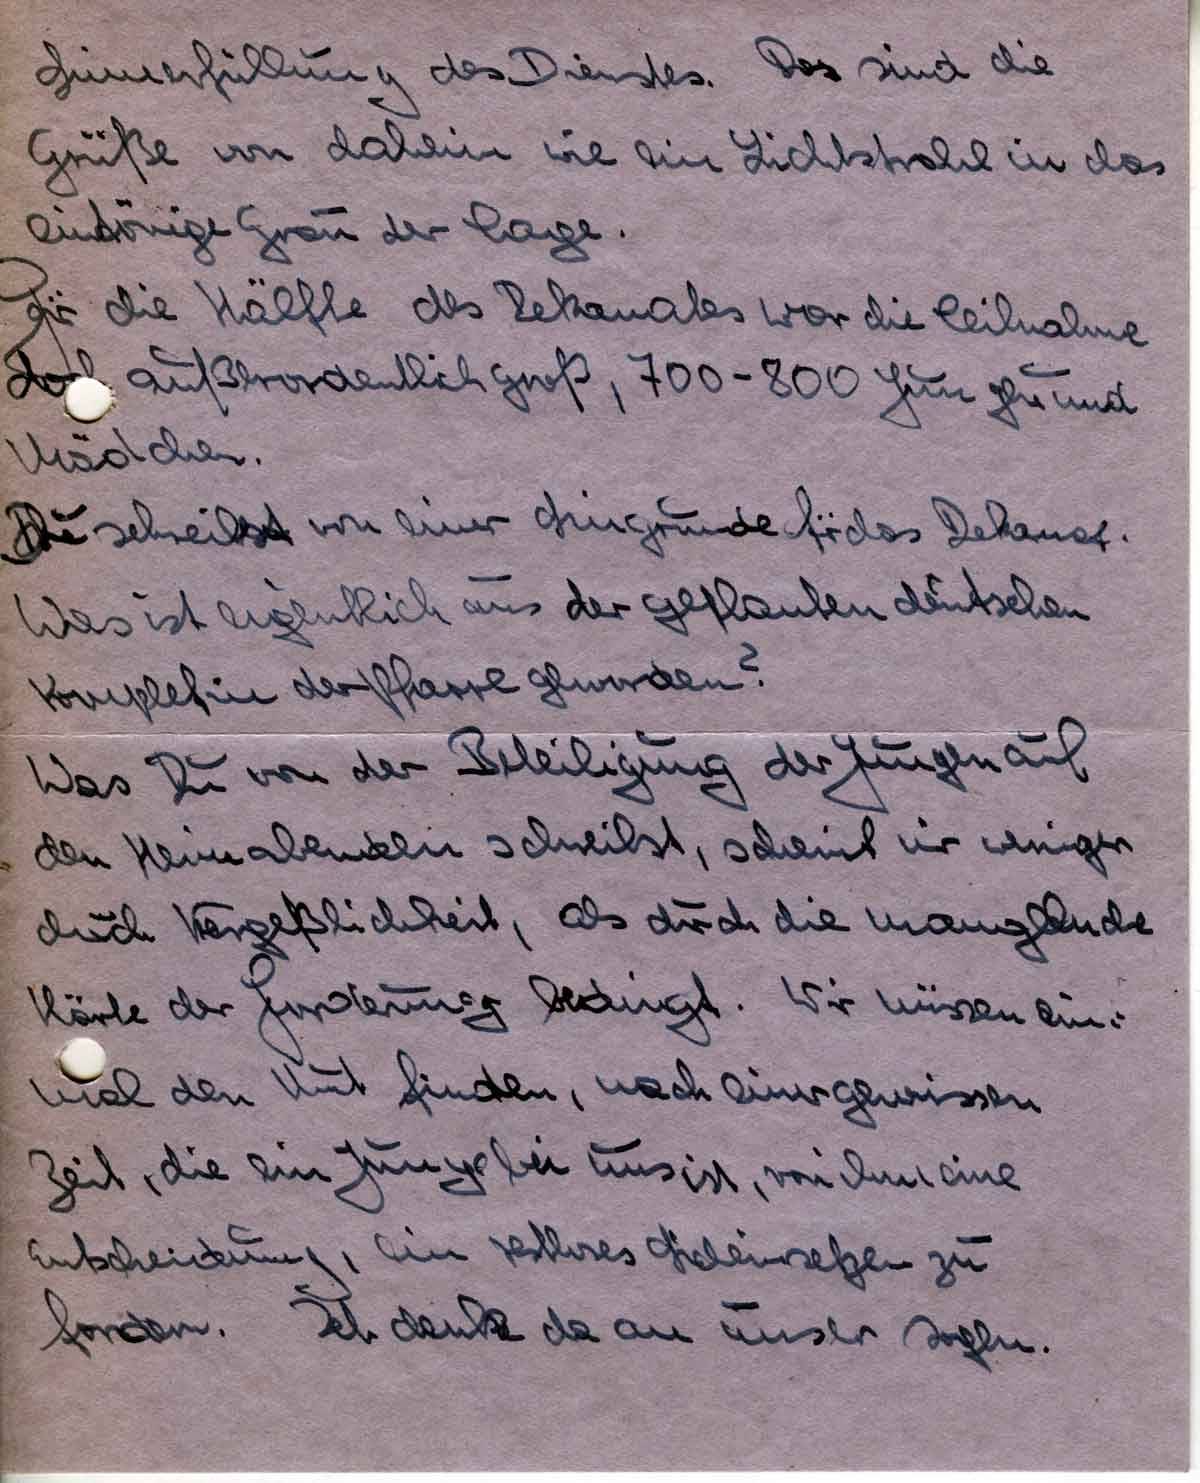 Sinnerfüllung des Dienstes. Das sind die
Grüße von daheim wie ein Lichtstrahl in das
eintönige Grau der Tage.
Für die Hälfte des Dekanates war die Teilnahme
doch außerordentlich groß, 700-800 Jungen und
Mädchen.
Du schreibst von einer Singrunde für das Dekanat.
Was ist eigentlich aus der geplanten deutschen
Komplet in der Pfarre geworden?
Was Du von der Beteiligung der Jungen auf
den Heimabenden schreibst, scheint mir weniger
durch Vergeßlichkeit, als durch die mangelnde
Härte der Forderung bedingt. Wir müssen ein-
mal den Mut finden, nach einer gewissen
Zeit, die ein Junge bei uns ist, von ihm eine
Entscheidung, ein restloses Sicheinsetzen zu
fordern. Ich denke da an unser